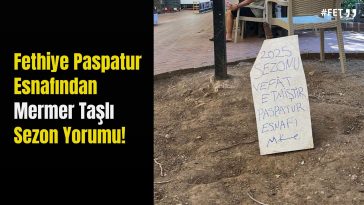 Fethiye Paspatur
Esnafından
Mermer Taşlı
Sezon Yorumu!
#FET
2025
SEZONU
VEFAT
ETMİŞTİR
PASPATUR
ESNAFI